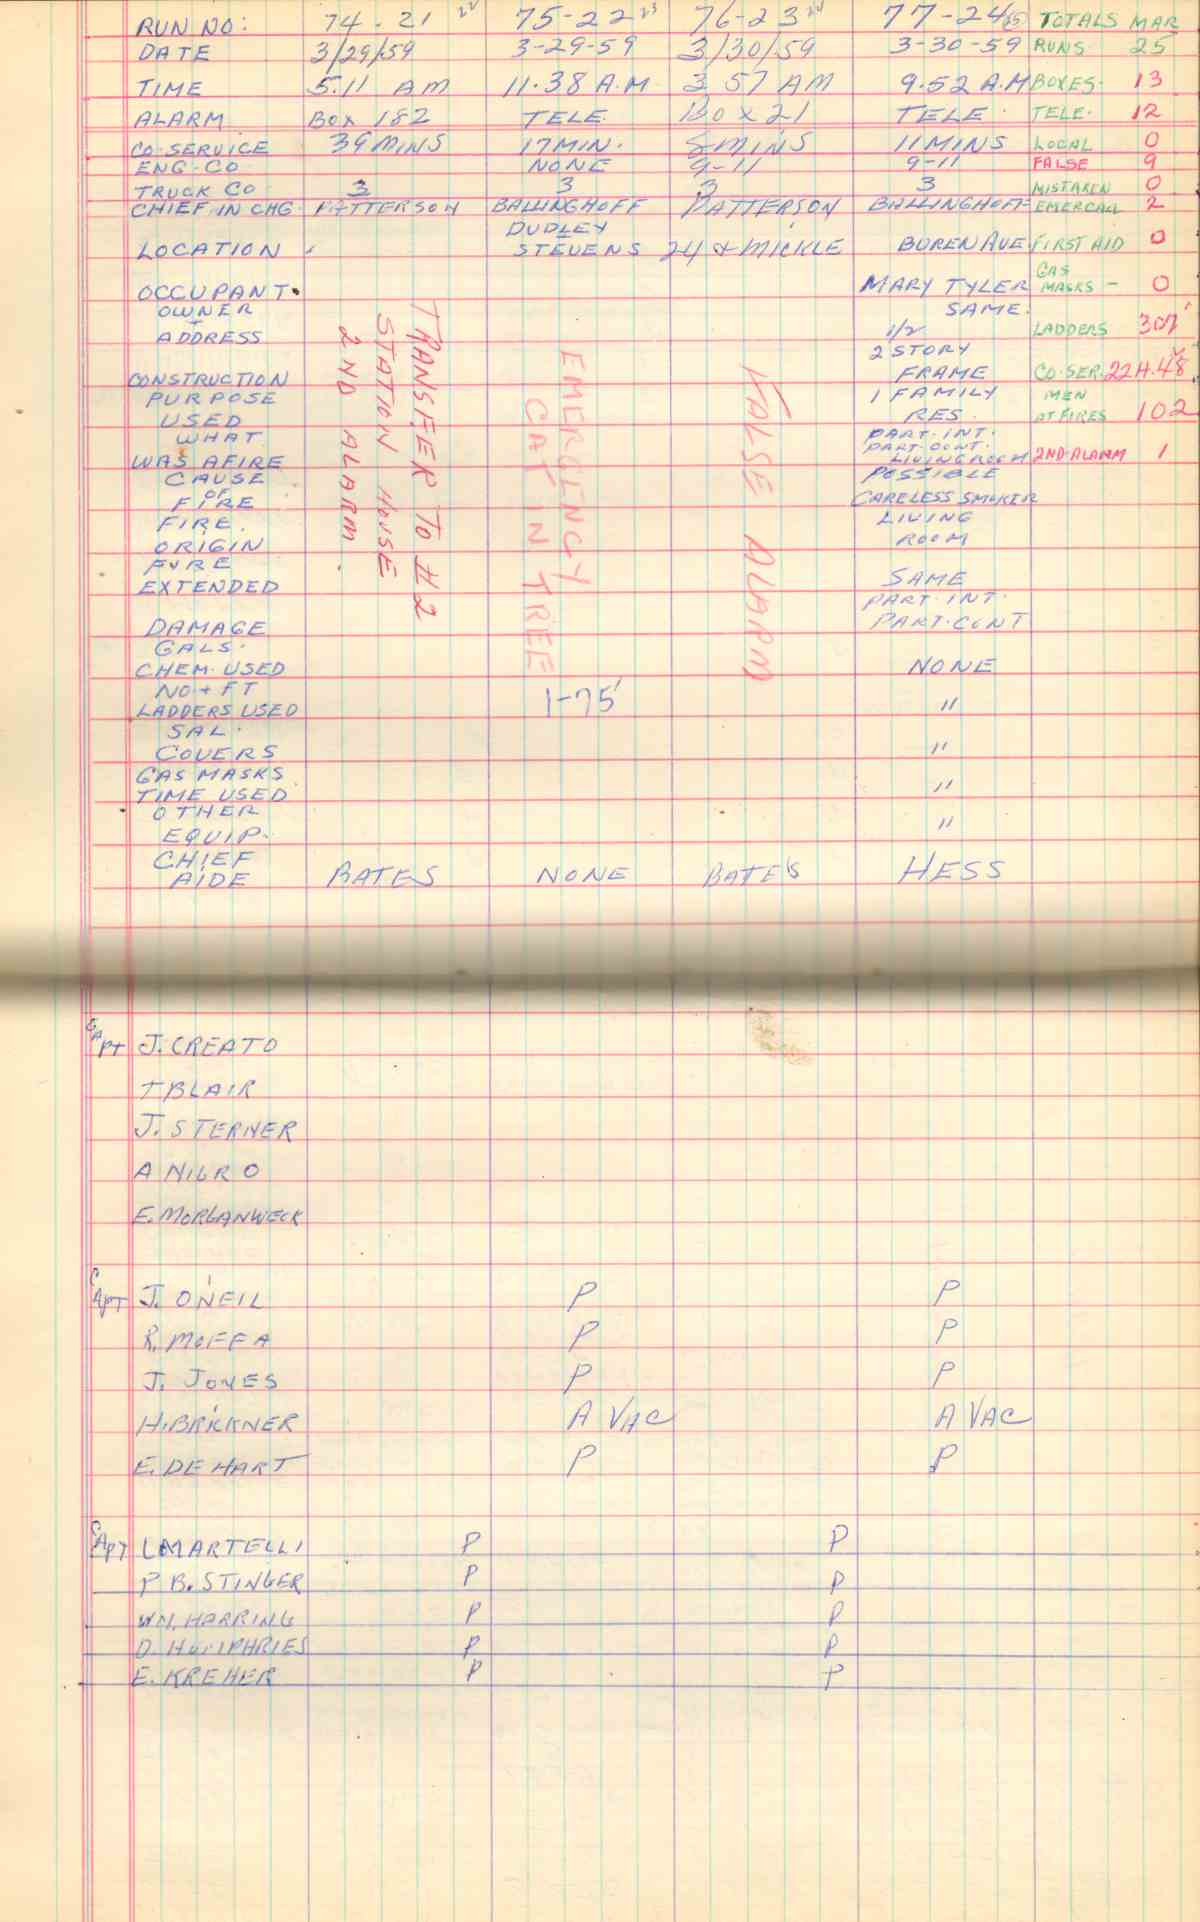 RUN NO: 74-21 22 75-22 23 76-23 24 77-24 25 TOTALS MAR
DATE 3/29/59 3-29-59 3/30/59 3-30-59 RUNS 25
TIME 5.11 AM 11.38 A.M. 3 57 AM 9.52 A.M BOXES- 13
ALARM BOX 182 TELE. BOX 21 TELE. TELE. 12
CO-SERVICE 39 MINS 17 MIN. MINS 11 MINS LOCAL 0
ENG-CO NONE 9-11 9-11 FALSE 9
TRUCK CO 3 3 3 3 MISTAKEN 0
CHIEF IN CHG. PATTERSON BALLINGHOFF PATTERSON BALLINGHOFF EMERCALL 2
DUDLEY
LOCATION STEVENS 24 & MICKLE BUREN AVE FIRST AID 0
OCCUPANT. MARY TYLER GAS MASKS - 0
OWNER SAME.
+
ADDRESS 1/2 LADDERS 307'
2 STORY
CONSTRUCTION FRAME CO-SER. 22H.48
PURPOSE 1 FAMILY MEN
USED RES. AT FIRES 102
WHAT PART. INT.
PART. CONT.
WAS AFIRE LIVING ROOM 2ND-ALARM 1
CAUSE POSSIBLE
OF
FIRE CARELESS SMOKER
FIRE. LIVING
ORIGIN ROOM
FIRE
EXTENDED SAME
PART. INT.
DAMAGE PART-CONT
GALS.
CHEM. USED NONE
NO + FT
LADDERS USED 1-75' "
SAL.
COVERS "
GAS MASKS
TIME USED "
OTHER
EQUIP. "
CHIEF
AIDE BATES NONE BATES HESS
TRANSFER TO #2
STATION HOUSE
2ND ALARM.
EMERGENCY
CAT IN TREE
FALSE ALARM
CAPT J. CREATO
T BLAIR
J. STERNER
A NIGRO
E. MORGANWECK
CAPT J. O'NEIL P P
R. MOFFA P P
J. JONES P P
H. BRICKNER A VAC A VAC
E. DE HART P P
CAPT L MARTELLI P P
P B. STINGER P P
WM. HARRING P P
D. HUMPHRIES P P
E. KREHER P P